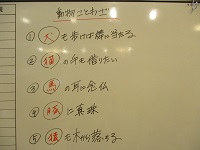 動物ことわざ
① 犬も歩けば棒に当たる
② 猫の手も借りたい
③ 馬の耳に念仏
④ 豚に真珠
⑤ 猿も木から落ちる